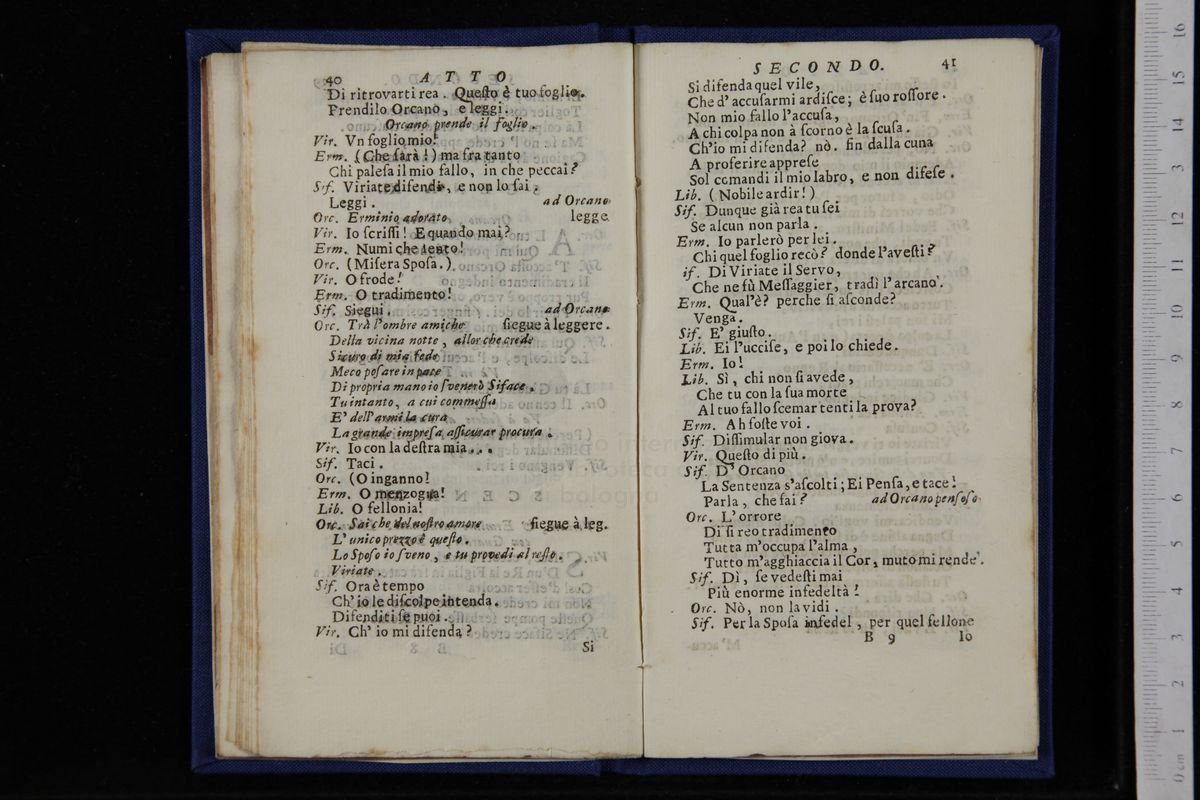 40 ATTO
Di ritrovarti rea. Queſto è tuo foglio.
Prendilo Orcano, e leggi.
Orcano prende il foglio.
Vir. Vn foglio mio!
Erm. (Che ſarà!) ma fra tanto
Chi paleſa il mio fallo, in che peccai?
Sif. Viriate difendi, e non lo ſai;
Leggi. ad Orcano
Orc. Erminio adorato legge
Vir. Io ſcriſſi! E quando mai?
Erm. Numi che ſento!
Orc. (Miſera Spoſa.)
Vir. O frode!
Erm. O tradimento!
Sif. Siegui. ad Orcano
Orc. Trà l'ombre amiche ſiegue à leggere.
Della vicina notte, allor che crede
Sicuro di mia fede
Meco poſare in pace
Di propria mano io ſvenerò Siface.
Tu intanto, a cui commeſſa
E' dell'armi la cura
La grande impreſa aſſicurar procura.
Vir. Io con la deſtra mia...
Sif. Taci.
Orc. (O inganno!
Erm. O menzogna!
Lib. O fellonia!
Orc. Sai che del noſtro amore ſiegue à leg.
L'unico prezzo è queſto.
Lo Spoſo io ſveno, e tu provedi al reſto.
Viriate.
Sif. Ora è tempo
Ch'io le diſcolpe intenda.
Difenditi ſe puoi.
Vir. Ch'io mi difenda?
Si
SECONDO. 41
Si difenda quel vile,
Che d'accuſarmi ardiſce; è ſuo roſſore.
Non mio fallo l'accuſa,
A chi colpa non à ſcorno è la ſcuſa.
Ch'io mi difenda? nò. fin dalla cuna
A proferire appreſe
Sol comandi il mio labro, e non difeſe.
Lib. (Nobile ardir!)
Sif. Dunque già rea tu ſei
Se alcun non parla.
Erm. Io parlerò per lei.
Chi quel foglio recò? donde l'aveſti?
if. Di Viriate il Servo,
Che ne fù Meſſaggier, tradì l'arcano.
Erm. Qual'è? perche ſi aſconde?
Venga.
Sif. E' giuſto.
Lib. Ei l'ucciſe, e poi lo chiede.
Erm. Io!
Lib. Sì, chi non ſi avede,
Che tu con la ſua morte
Al tuo fallo ſcemar tenti la prova?
Erm. Ah foſte voi.
Sif. Diſſimular non giova.
Vir. Queſto di più.
Sif. D'Orcano
La Sentenza s'aſcolti; Ei Penſa, e tace!
Parla, che fai? ad Orcano penſoſo.
Orc. L'orrore
Di ſi reo tradimento
Tutta m'occupa l'alma,
Tutto m'agghiaccia il Cor, muto mi rende.
Sif. Dì, ſe vedeſti mai
Più enorme infedeltà!
Orc. Nò, non la vidi.
Sif. Per la Spoſa infedel, per quel fellone
B 9 Io